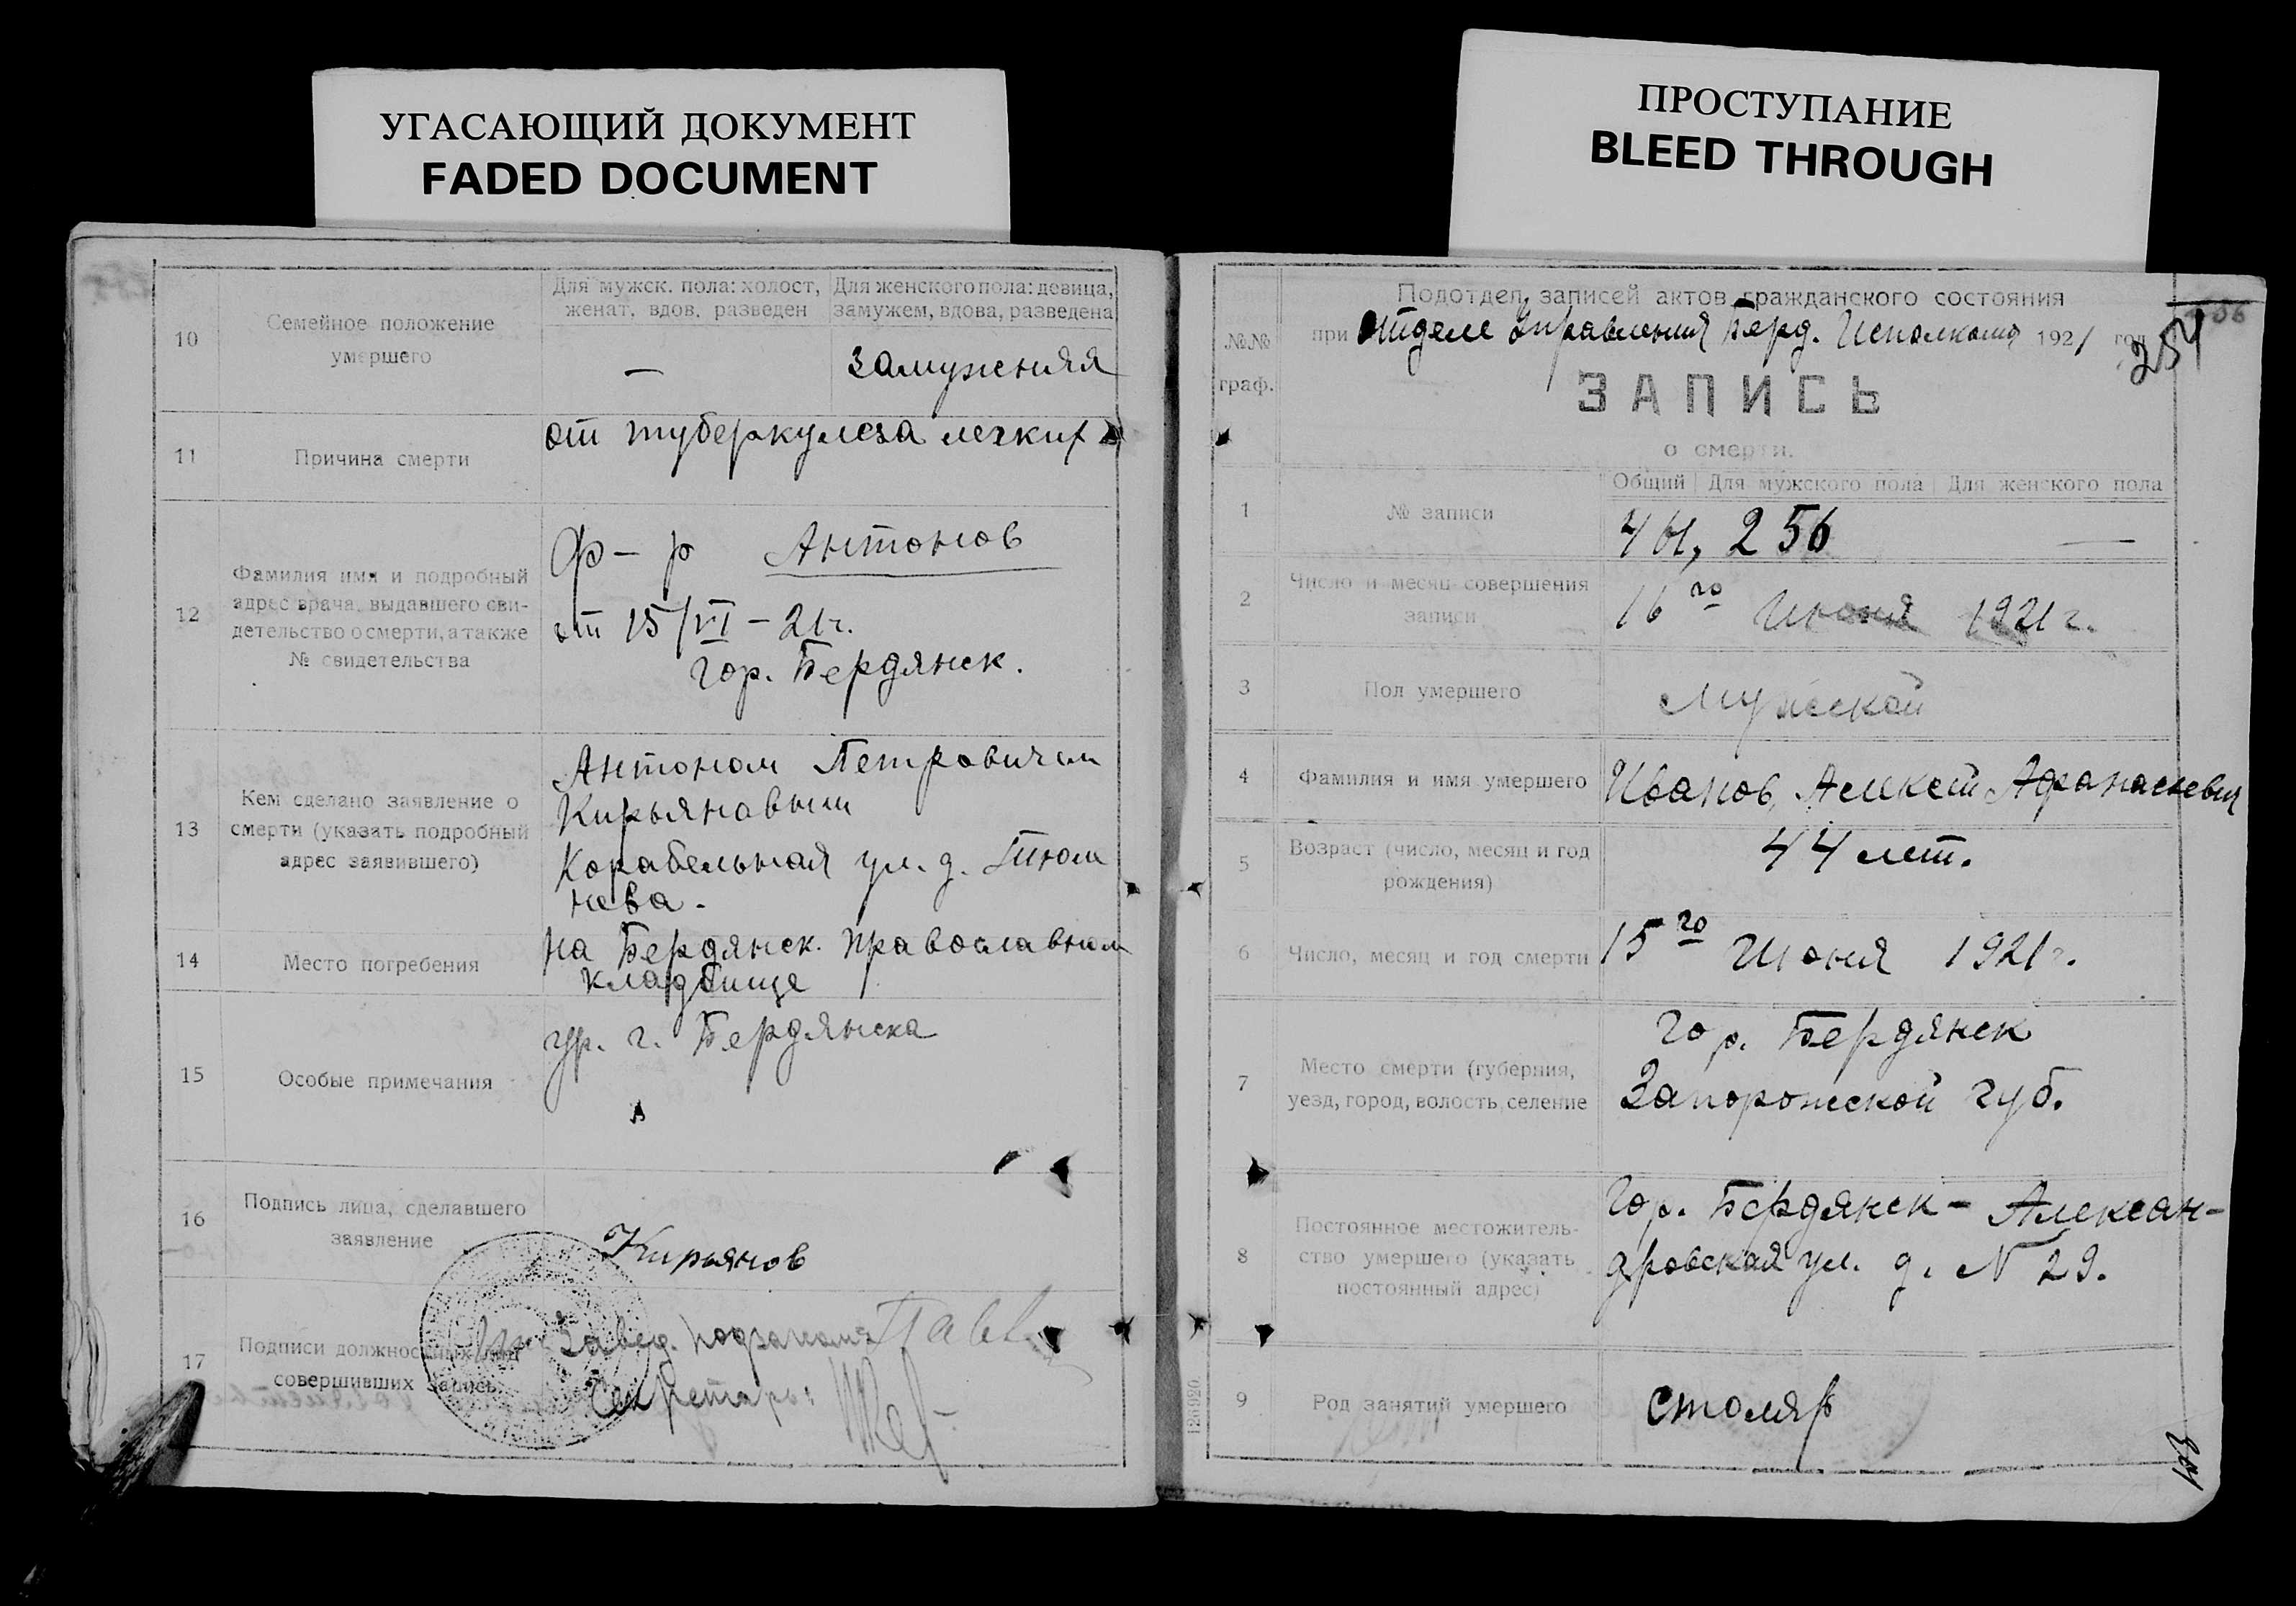 УГАСАЮЩИЙ ДОКУМЕНТ
FADED DOCUMENT
ПРОСТУПАНИЕ
BLEED THROUGH
10
Семейное положение
умершего
Для мужск. пола: холост,
женат, вдов, разведен
Для женского пола: девица,
замужем, вдова, разведена
—
замужняя
11
Причина смерти
от туберкулеза легких
12
Фамилия имя и подробный
адрес врача, выдавшего сви-
детельство о смерти, а также
№ свидетельства
Ф-р Антонов
от 15/VI – 21 г.
гор. Бердянск.
13
Кем сделано заявление о
смерти (указать подробный
адрес заявившего)
Антоном Петровичем
Кирьяновым
Корабельная ул. д. Тюм
нева.
14
Место погребения
на Бердянск. православном
кладбище
15
Особые примечания
ур. г. Бердянска
16
Подпись лица, сделавшего
заявление
Кирьянов
17
Подписи должностных лиц
совершивших запись.
Завед. подзагсом
Секретарь:
№№
граф.
Подотдел записей актов гражданского состояния
при отделе Управления Берд. Исполкома 1921 год
254
ЗАПИСЬ
о смерти.
Общий Для мужского пола Для женского пола
1
№ записи
461, 256 —
2
Число и месяц совершения
записи
16го Июня 1921 г.
3
Пол умершего
мужской
4
Фамилия и имя умершего
Иванов, Алексей Афанасьевич
5
Возраст (число, месяц и год
рождения)
44 лет.
6
Число, месяц и год смерти
15го Июня 1921 г.
7
Место смерти (губерния,
уезд, город, волость, селение
гор. Бердянск
Запорожской губ.
8
Постоянное местожитель-
ство умершего (указать
постоянный адрес)
гор. Бердянск – Алексан-
дровская ул. д. № 29.
9
Род занятий умершего
столяр
126920.